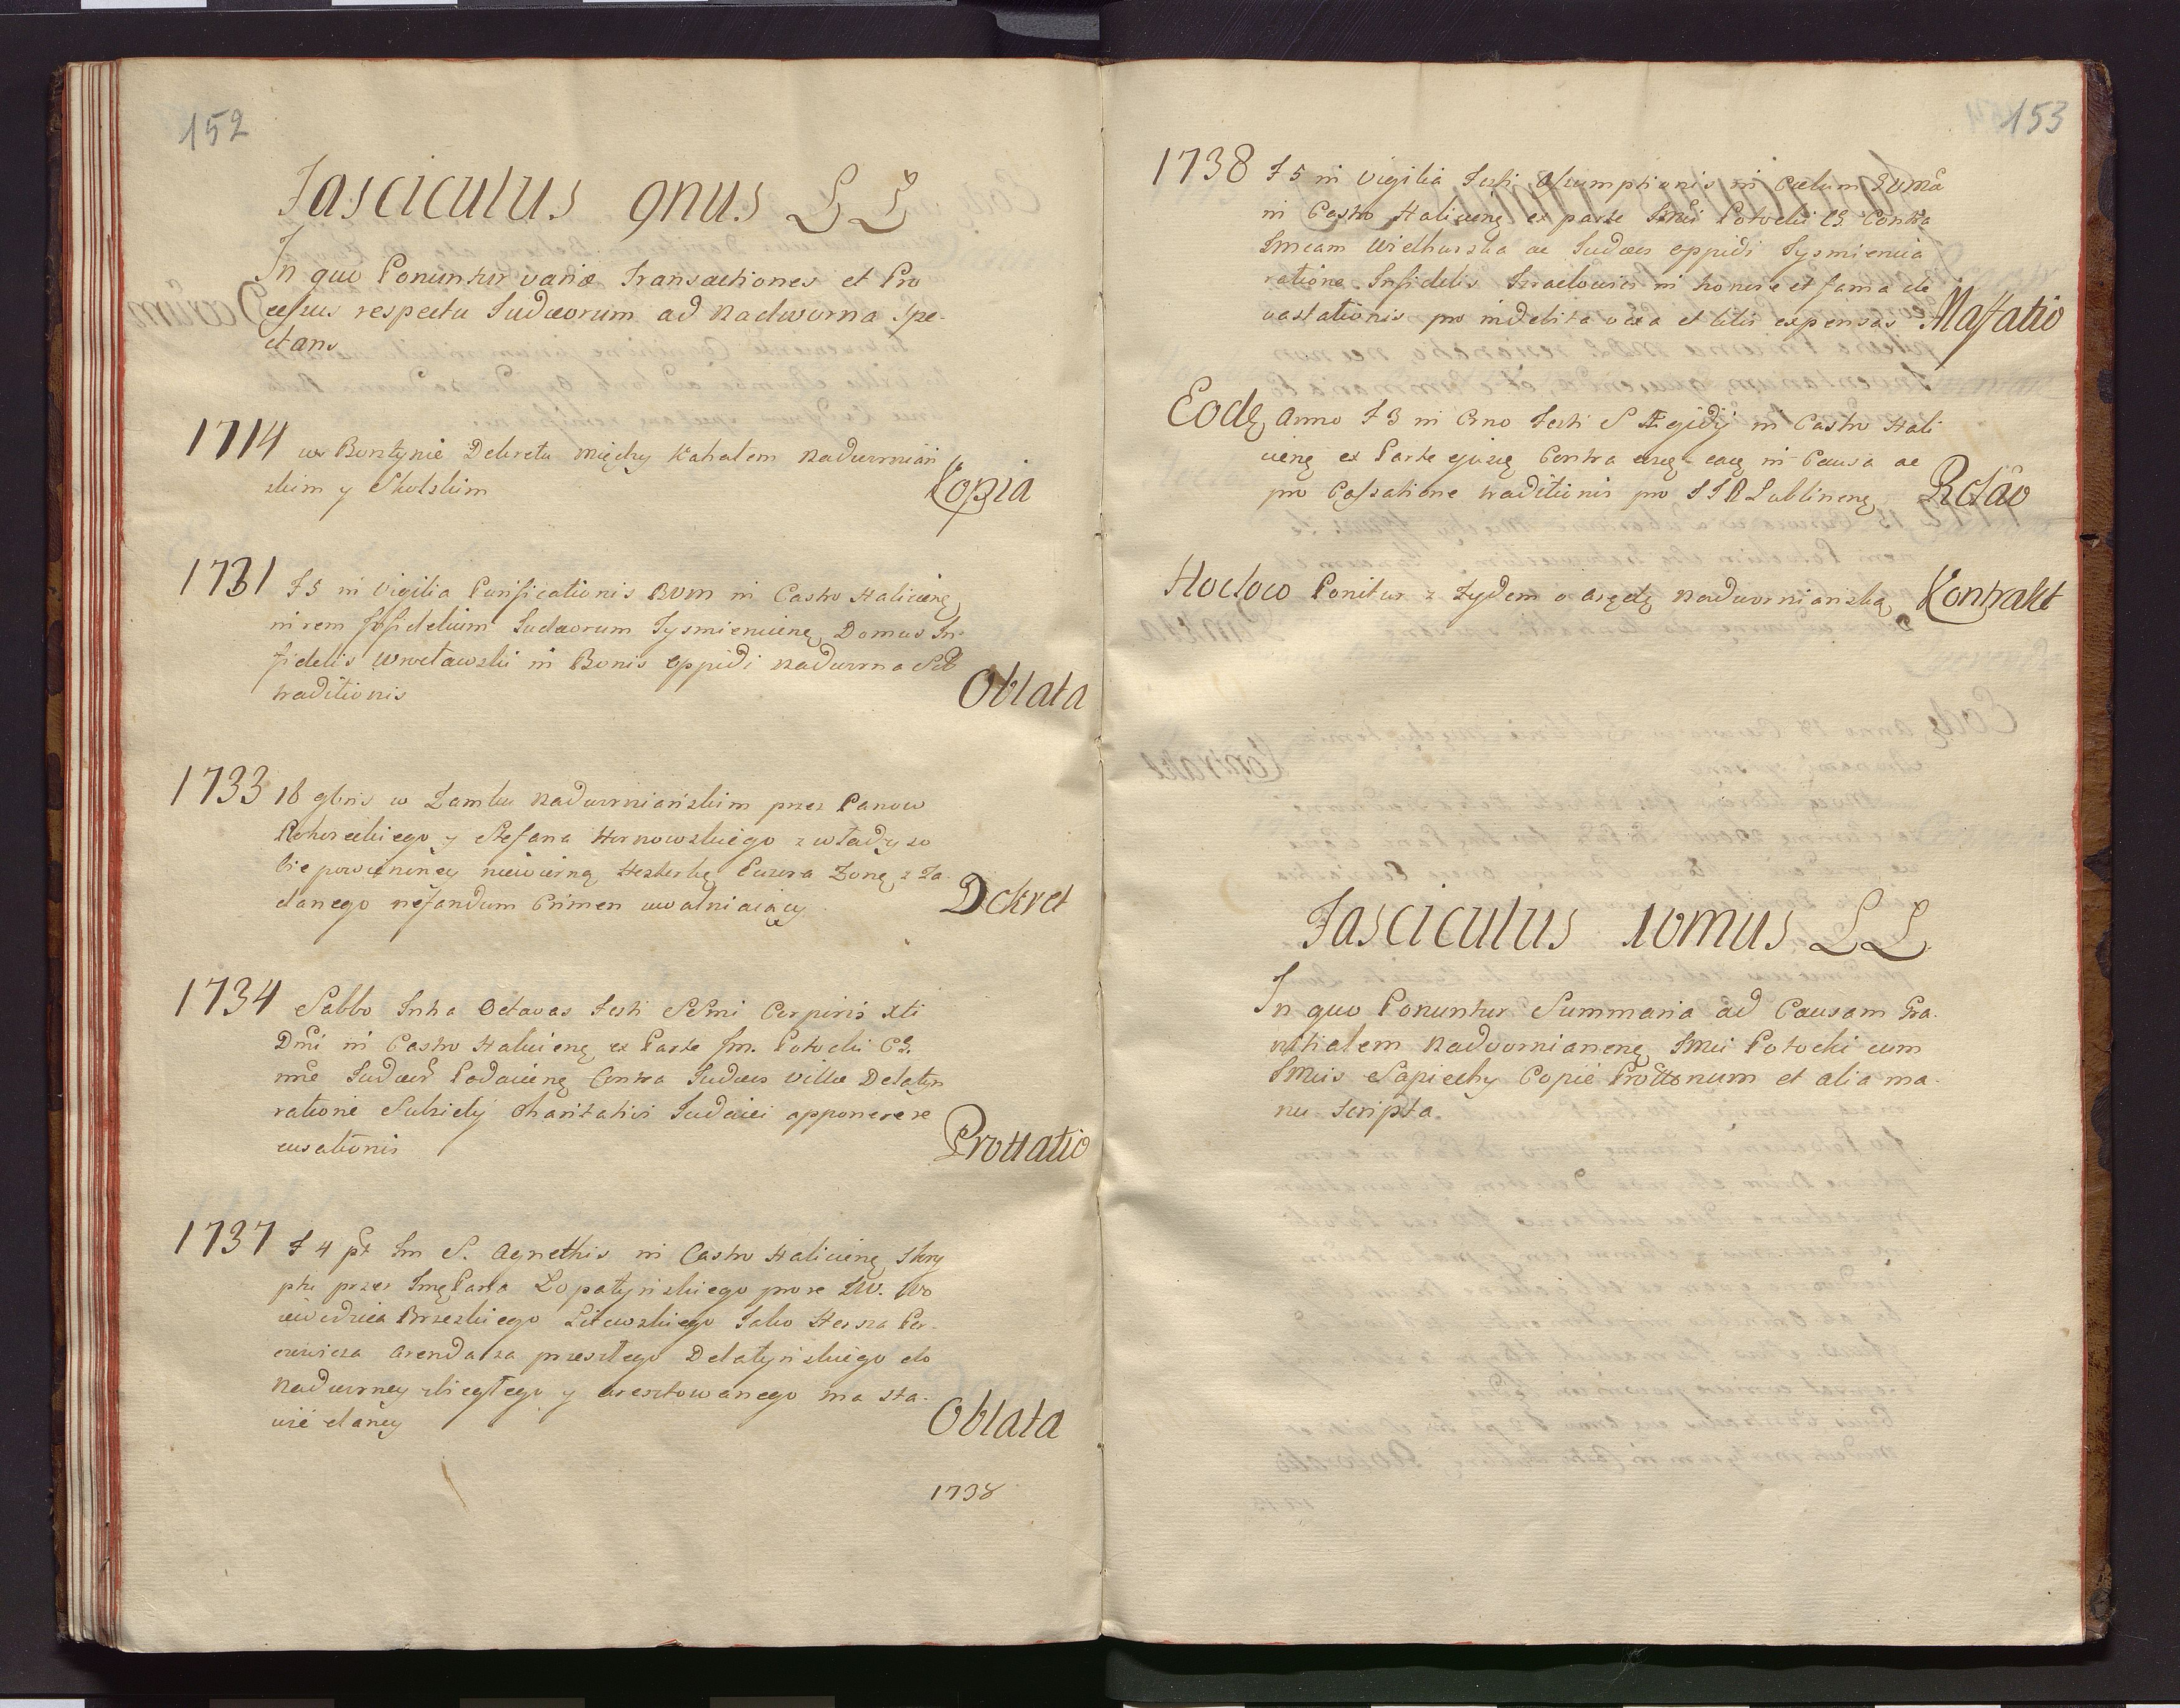 152
Fasciculus 9nus LL
In quo Ponuntur variæ Transactiones et Pro
cessus respectu Judæorum ad Nadworna spe-
ctans
1714 w Bursztynie Dekretu między Kahałem Nadwornian
skim y Skolskim Kopia
1731 F 5 in Vigilia Purificationis BVM in Castro Haliciene
in rem Infidelium Judæorum Tysmieniciene Domus In-
fidelis Wrocławski in Bonis oppidi Nadworna
traditionis Oblata
1733 16 9bris w Zamku Nadworniańskim przez Panow
y Stefana Hornowskiego z władzy so
bie powierzoney niewierną Żonę z Za
danego nefandum Crimen uwalniaiący Dekret
1734 Sabbo Intra Octavas Festi SSmi Corporis Xti
Dni in Castro Haliciene ex Parte Im. Potocki CS.
Contra Judæos Villæ Delatyn
ratione Subsidy Charitativi Judaici apponere re
cusationis Prottatio
1737 F 4 pt Im S. Agnethis in Castro Haliciene Skry
ptu przez Imę Pana Łopatyńskiego pro re JW. Wo
iewodzica Brzeskiego Litewskiego Jako Herszka Per
cowicza Arendarza przeszłego Delatyńskiego do
Nadworney zbiegłego y aresztowanego ma sta-
wić dany Oblata
1738
153
1738 F 5 in Vigilia Festi Assumptionis in Cœlum BVMa
in Castro Haliciene ex parte Imci Potocki CS. Contra
Imcam Wielhorska ac Judæos oppidi Tysmienica
ratione Infidelis Izraelowicz in honore et fama de
vastationis pro indebita vexa et litis expensas Mastatio
Eode Anno F 3 in Crno Festi S Ægidij in Castro Hali
ciene ex Parte ejusq Contra in Causa ac
pro Cassatione traditionis pro Lublinene
Hocloco Ponitur z Żydem o arędę Nadworniańską Kontrakt
Fasciculus 10mus LL.
In quo Ponuntur Summaria ad Causam Gra-
nitialem Nadvornianene Imci Potocki cum
Imcis Sapiechy Copie Prottonum et alia ma-
nu scripta.